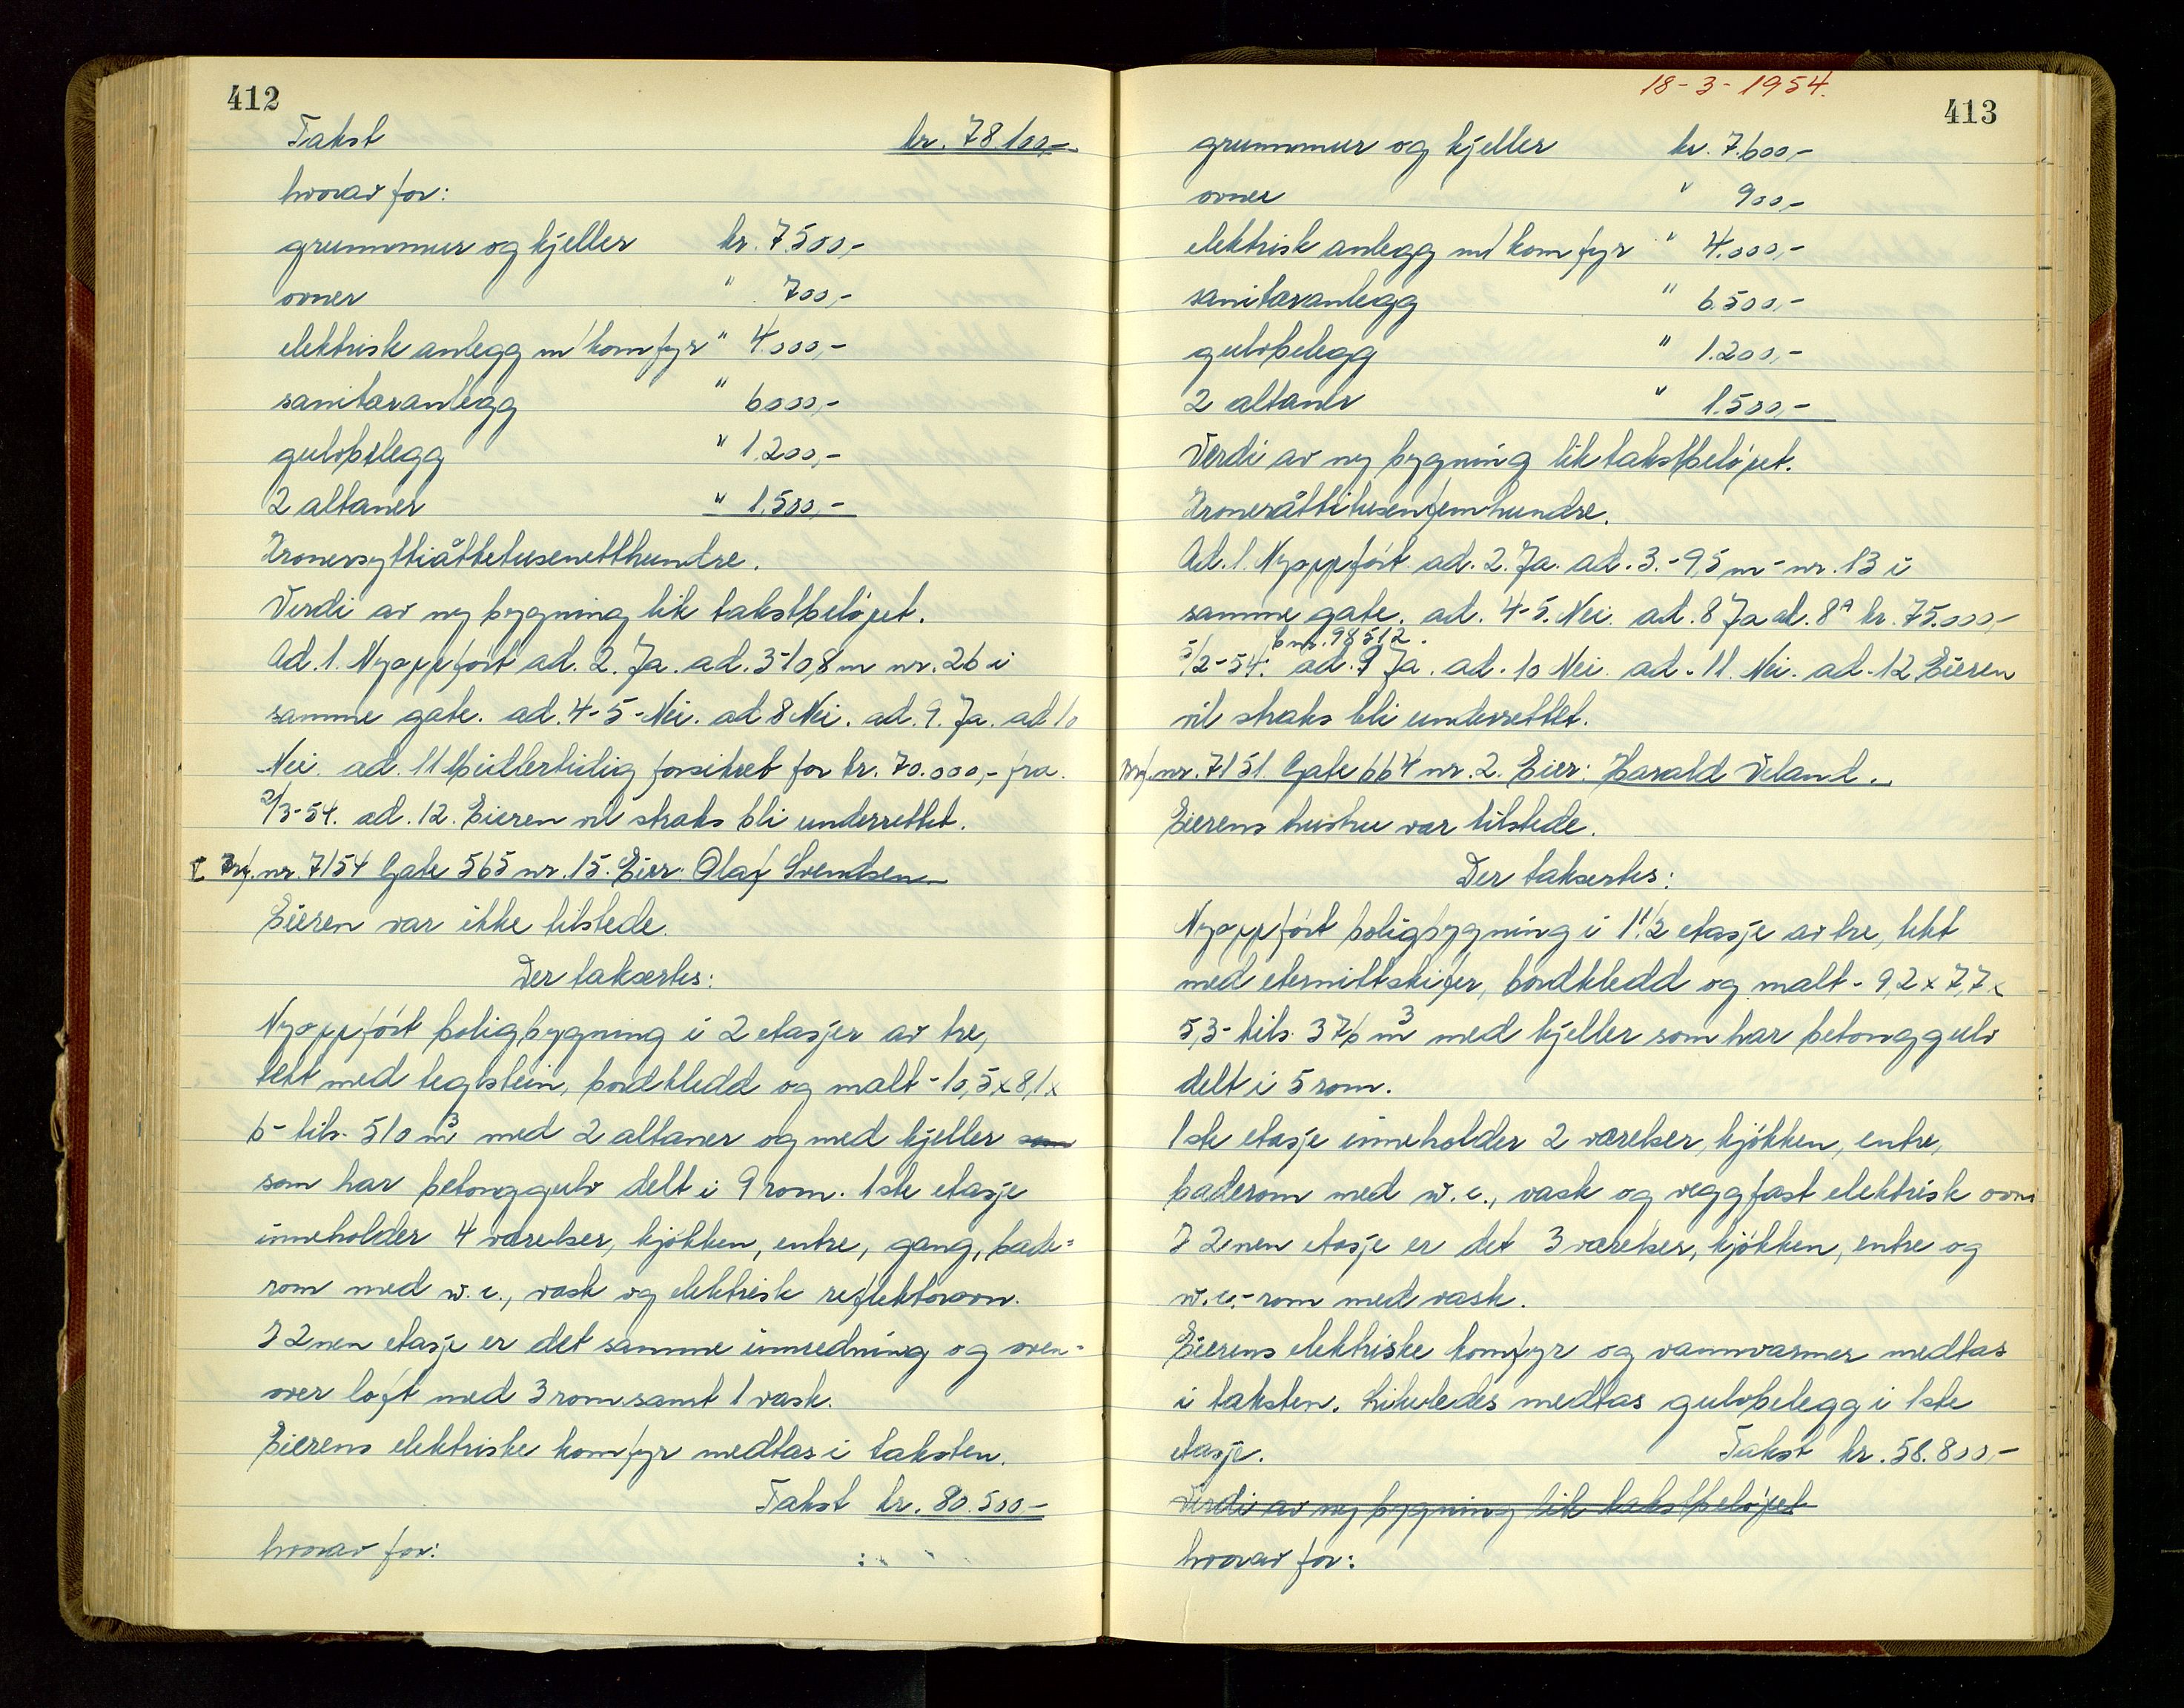 412
Takst kr. 78.100,-
hvorav for:
grunnmur og kjeller kr. 7.500,-
ovner " 700,-
elektrisk anlegg m/komfyr " 4.000,-
sanitæranlegg " 6000,-
gulvbelegg " 1.200,-
2 altaner " 1.500,-
Kronersyttiåttetusenetthundre.
Verdi av ny bygning lik takstbeløpet.
Ad. 1. Nyoppført ad. 2. Ja. ad. 3-10,8 m nr. 26 i
samme gate. ad. 4-5-Nei. ad 8 Nei. ad. 9. Ja. ad 10
Nei. ad. 11 Midlertidig forsikret for kr. 70.000,- fra
2/3-54. ad. 12. Eieren vil straks bli underrettet.
Brf. nr. 7154 Gate 565 nr. 15. Eier: Olaf Svendsen
Eieren var ikke tilstede.
Der takseres:
Nyoppført boligbygning i 2 etasjer av tre,
tekt med teglstein, bordkledd og malt - 10,5 x 8,1 x
6 - tils. 510 m³ med 2 altaner og med kjeller som
som har betonggulv delt i 9 rom. 1ste etasje
inneholder 4 værelser, kjøkken, entre, gang, bade=
rom med w.c., vask og elektrisk reflektorovn.
I 2nen etasje er det samme innredning og oven-
over loft med 3 rom samt 1 vask.
Eierens elektriske komfyr medtas i taksten.
Takst kr. 80.500-
hvorav for:
18-3-1954.
413
grunnmur og kjeller kr. 7.600,-
ovner " 900,-
elektrisk anlegg m/komfyr " 4.000,-
sanitæranlegg " 6.500,-
gulvbelegg " 1.200,-
2 altaner " 1.500,-
Verdi av ny bygning lik takstbeløpet.
Kroneråttitusenfemhundre.
Ad. 1. Nyoppført. ad. 2. Ja. ad. 3.-9,5 m - nr. 13 i
samme gate. ad. 4-5. Nei. ad. 8 Ja ad. 8ª kr. 75.000,-
bnr. 98512.
5/2-54. ad. 9 Ja. ad. 10 Nei. ad. 11. Nei. ad. 12 Eieren
vil straks bli underrettet.
Brf. nr. 7151 Gate 664 nr. 2. Eier: Harald Veland.
Eierens hustru var tilstede.
Der takseres:
Nyoppført boligbygning i 1 1/2 etasje av tre, tekt
med eternittskifer, bordkledd og malt - 9,2 x 7,7 x
5,3 - tils. 376 m³ med kjeller som har betonggulv
delt i 5 rom.
1ste etasje inneholder 2 værelser, kjøkken, entre,
baderom med w.c., vask og veggfast elektrisk ovn.
I 2nen etasje er det 3 værelser, kjøkken, entre og
w.c.-rom med vask.
Eierens elektriske komfyr og vannvarmer medtas
i taksten. Likeledes medtas gulvbelegg i 1ste
etasje. Takst kr. 58.800,-
Verdi av ny bygning lik takstbeløpet
hvorav for: